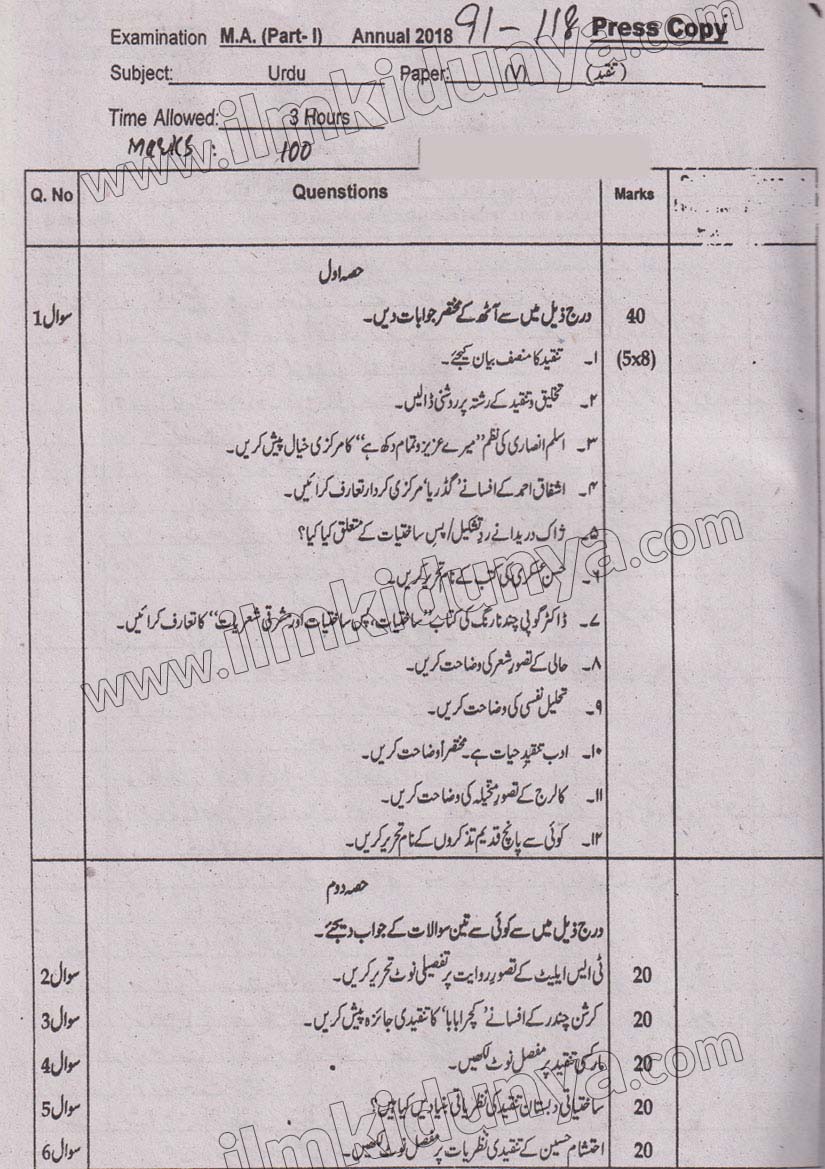 Examination M.A. (Part- I) Annual 2018 91-118 Press Copy
Subject: Urdu Paper: (V) (تنقید)
Time Allowed: 3 Hours
Marks : 100
Q. No Quenstions Marks
حصہ اول
سوال 1 درج ذیل میں سے آٹھ کے مختصر جوابات دیں۔ 40
۱۔ تنقید کا منصف بیان کیجئے۔ (5x8)
۲۔ تخلیق و تنقید کے رشتہ پر روشنی ڈالیں۔
۳۔ اسلم انصاری کی نظم "میرے عزیزو تمام دکھ ہے" کا مرکزی خیال پیش کریں۔
۴۔ اشفاق احمد کے افسانے 'گڈریا' مرکزی کردار تعارف کرائیں۔
۵۔ ژاک دریدا نے ردِ تشکیل/پسِ ساختیات کے متعلق کیا کیا؟
۶۔ حسن عسکری کی کتب کے نام تحریر کریں۔
۷۔ ڈاکٹر گوپی چند نارنگ کی کتاب "ساختیات، پس ساختیات اور مشرقی شعریات" کا تعارف کرائیں۔
۸۔ حالی کے تصورِ شعر کی وضاحت کریں۔
۹۔ تحلیل نفسی کی وضاحت کریں۔
۱۰۔ ادب تنقیدِ حیات ہے۔ مختصراً وضاحت کریں۔
۱۱۔ کالرج کے تصورِ متخیلہ کی وضاحت کریں۔
۱۲۔ کوئی سے پانچ قدیم تذکروں کے نام تحریر کریں۔
حصہ دوم
درج ذیل میں سے کوئی سے تین سوالات کے جواب دیجئے۔
سوال 2 ٹی ایس ایلیٹ کے تصورِ روایت پر تفصیلی نوٹ تحریر کریں۔ 20
سوال 3 کرشن چندر کے افسانے 'کچرا بابا' کا تنقیدی جائزہ پیش کریں۔ 20
سوال 4 مارکسی تنقید پر مفصل نوٹ لکھیں۔ 20
سوال 5 ساختیاتی دبستان تنقید کی نظریاتی بنیادیں کیا ہیں؟ 20
سوال 6 احتشام حسین کے تنقیدی نظریات پر مفصل نوٹ لکھیں۔ 20
www.ilmkidunya.com
www.ilmkidunya.com
ilmkidunya.com